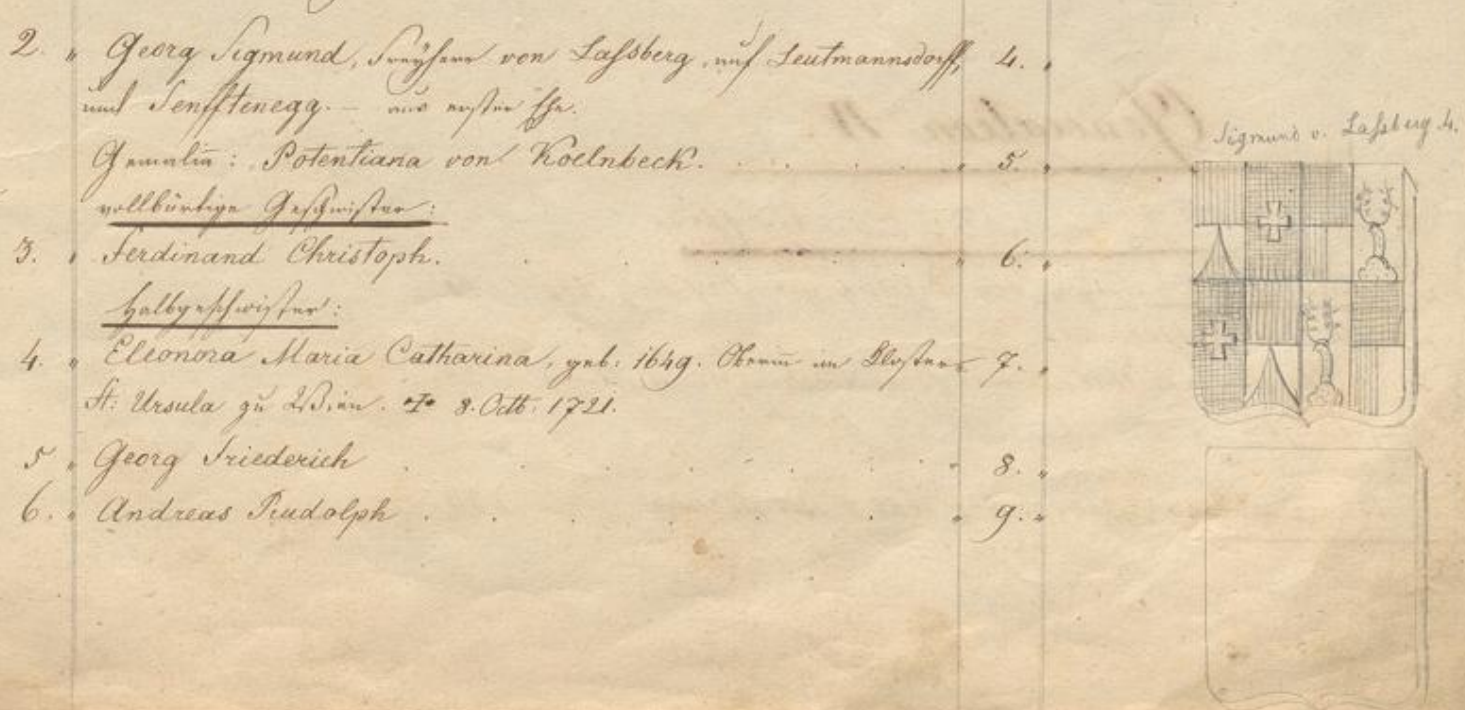 2. " Georg Sigmund, Freyherr von Laßberg, auf Leutmannsdorff, 4. "
und Senfftenegg. — aus erster Ehe.
Gemalin̄: Potentiana von Koelnbeck. . . . . " 5. "
vollbürtige Geschwister:
3. " Ferdinand Christoph. . . . . " 6. "
Halbgeschwister:
4. " Eleonora Maria Catharina, geb: 1649. Oberin̄ im Kloster 7. "
St: Ursula zu Wien. + 8. Octb. 1721.
5 " Georg Friederich . . . . . . " 8. "
6. " Andreas Rudolph . . . . . " 9. "
Sigmund v. Laßberg 4.